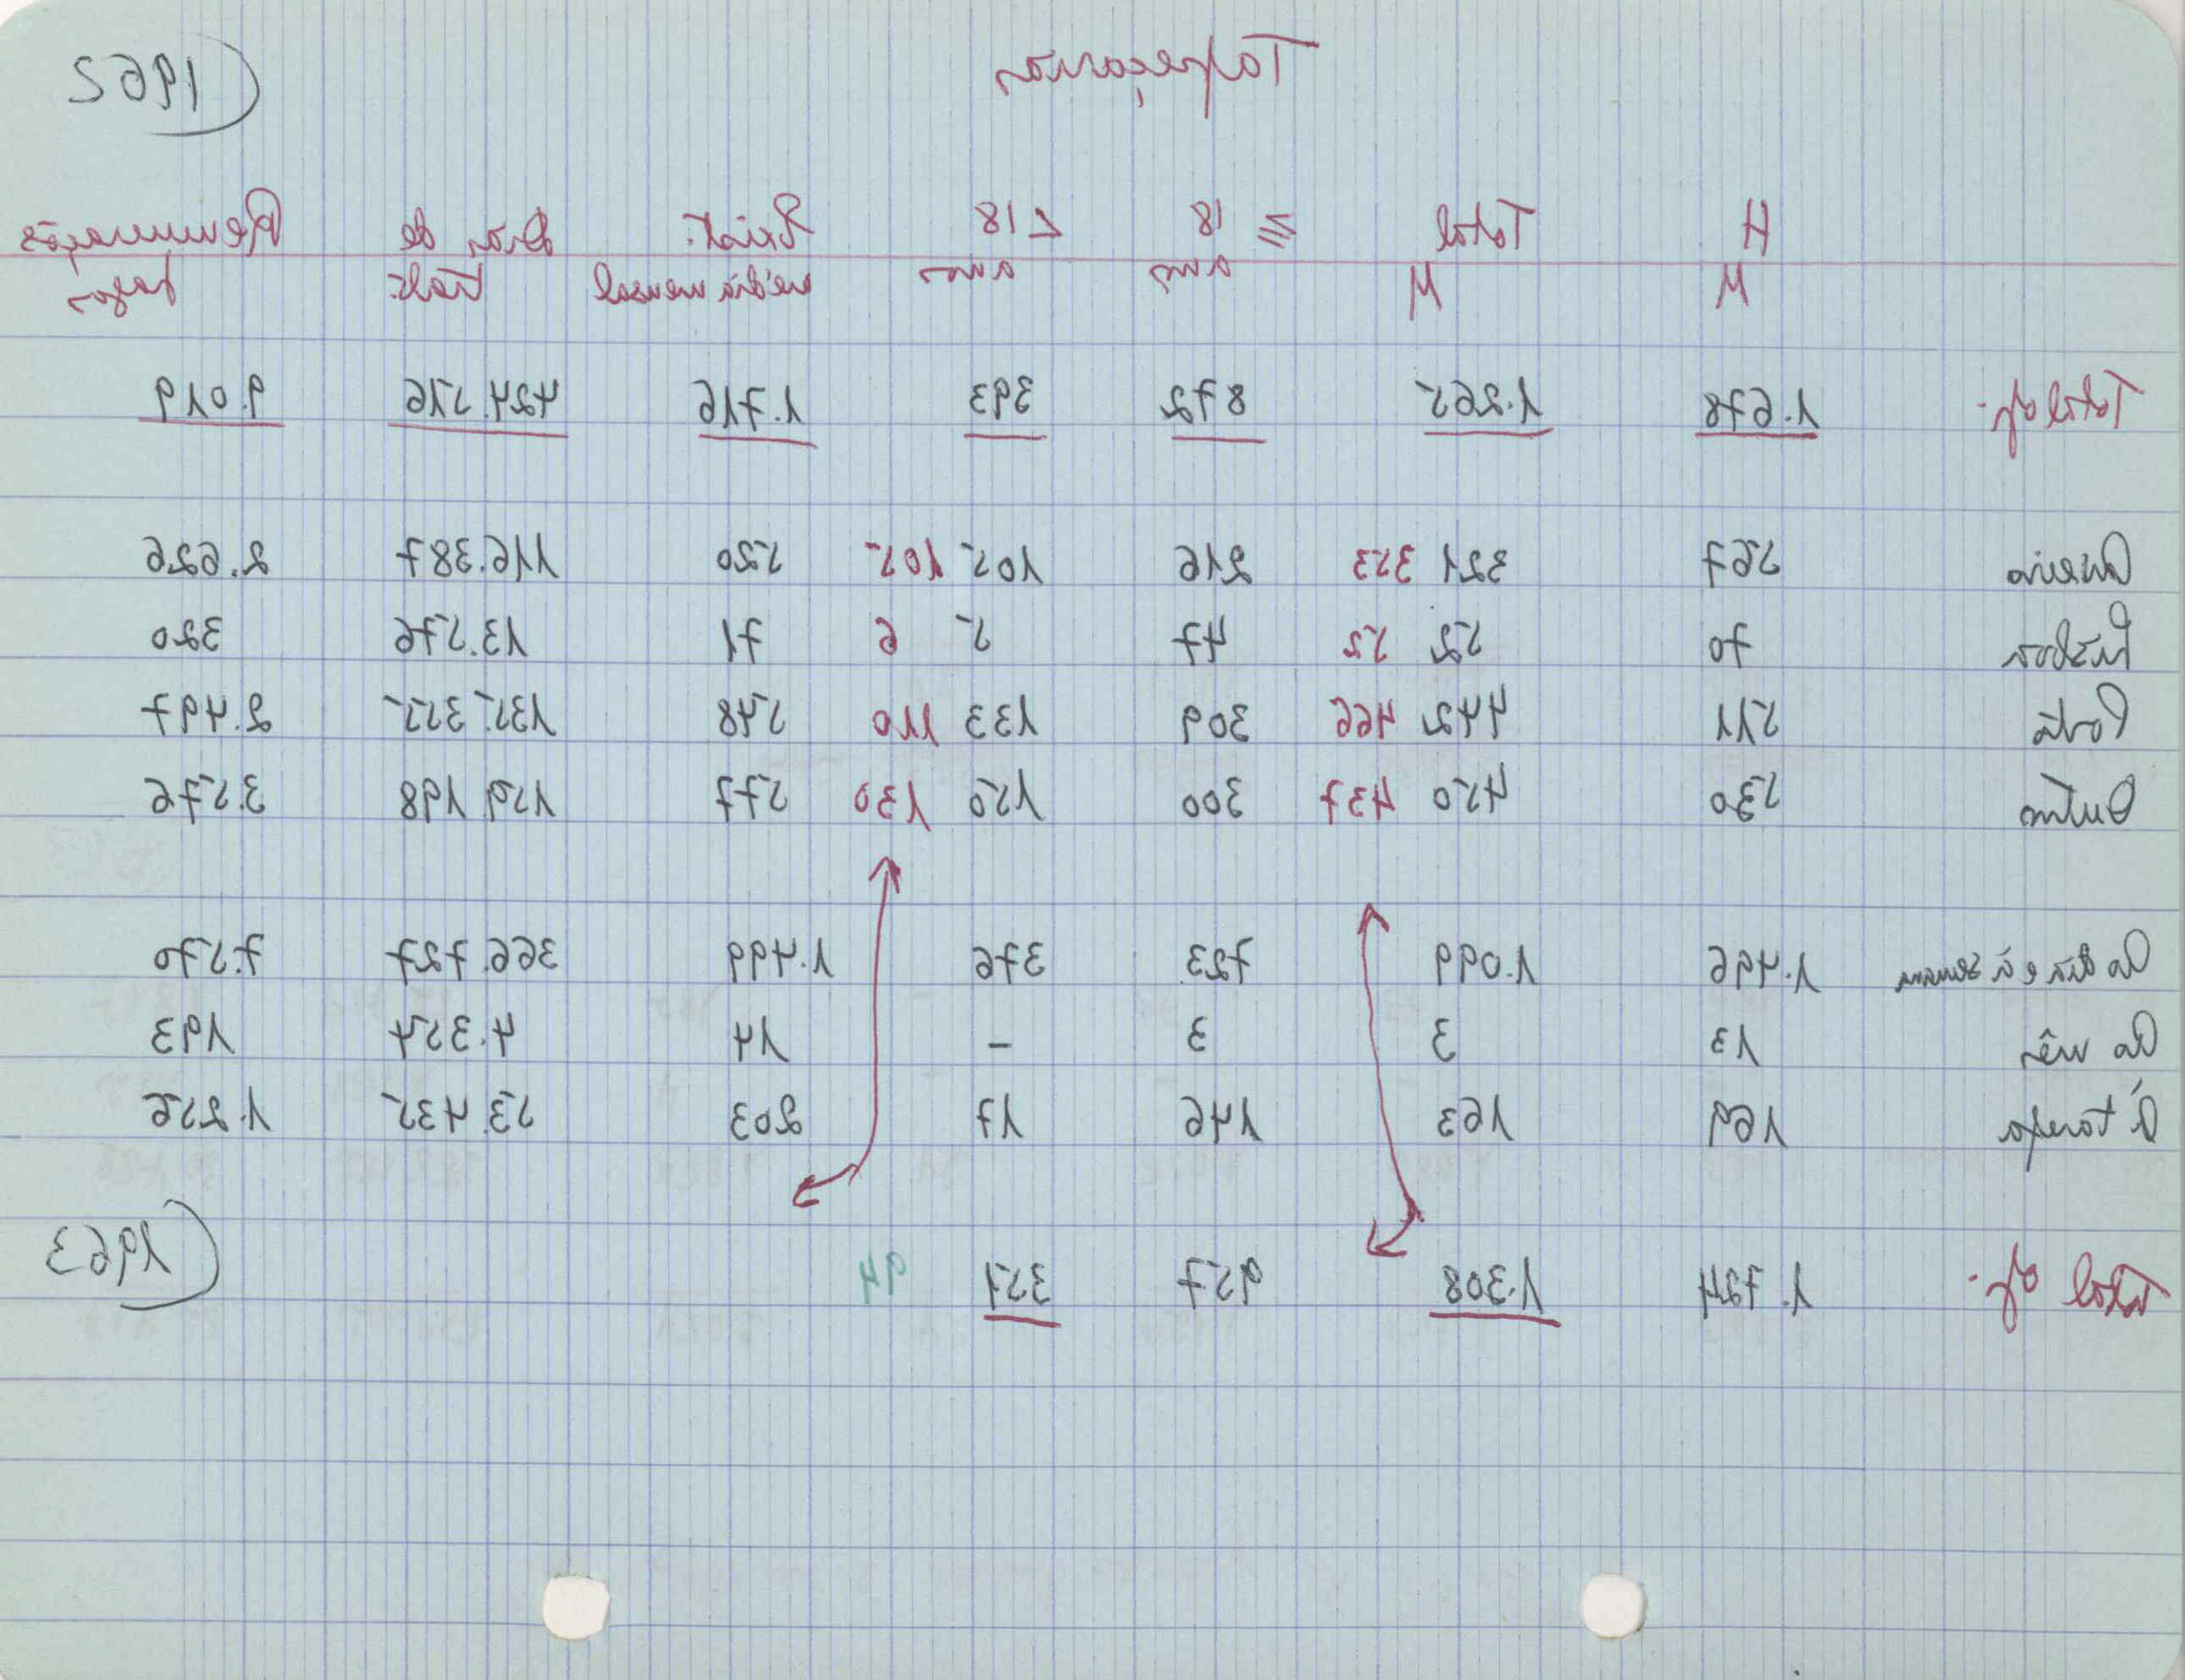 Tapeçarias (1962
H Total ≥ 18 < 18 Exist. Dias de Remunerações
M M anos anos média mensal trab. pagas
Total gl. 1.678 1.265 872 393 1.716 424.516 9.019
Aveiro 567 321 353 216 105 105 520 116.387 2.626
Lisboa 70 52 52 47 5 6 71 13.576 320
Porto 511 442 466 309 133 110 548 135.355 2.497
Outros 530 450 437 300 150 130 577 159.198 3.576
Ao dia e à semana 1.496 1.099 723 376 1.499 366.727 7.570
Ao mês 13 3 3 – 14 4.354 193
À tarefa 169 163 146 17 203 53.435 1.256
Total gl. 1.724 1.308 957 351 94 (1963